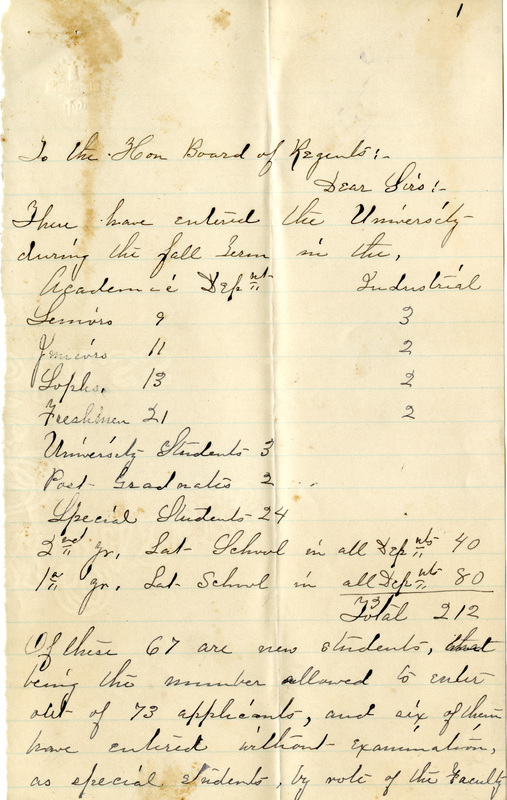 1
To the Hon Board of Regents:-
Dear Sirs:-
There have entered the University
during the fall Term in the,
Academic Depnt Industrial
Seniors 9 3
Juniors 11 2
Sophs. 13 2
Freshmen 21 2
University Students 3
Post Graduates 2
Special Students 24
2nd gr, Lat School in all Depnts 40
1st gr, Lat School in all Depnts 80
73
Total 212
Of these 67 are new students, that
being the number allowed to enter
out of 73 applicants, and six of them
have entered without examination,
as special students, by vote of the Faculty